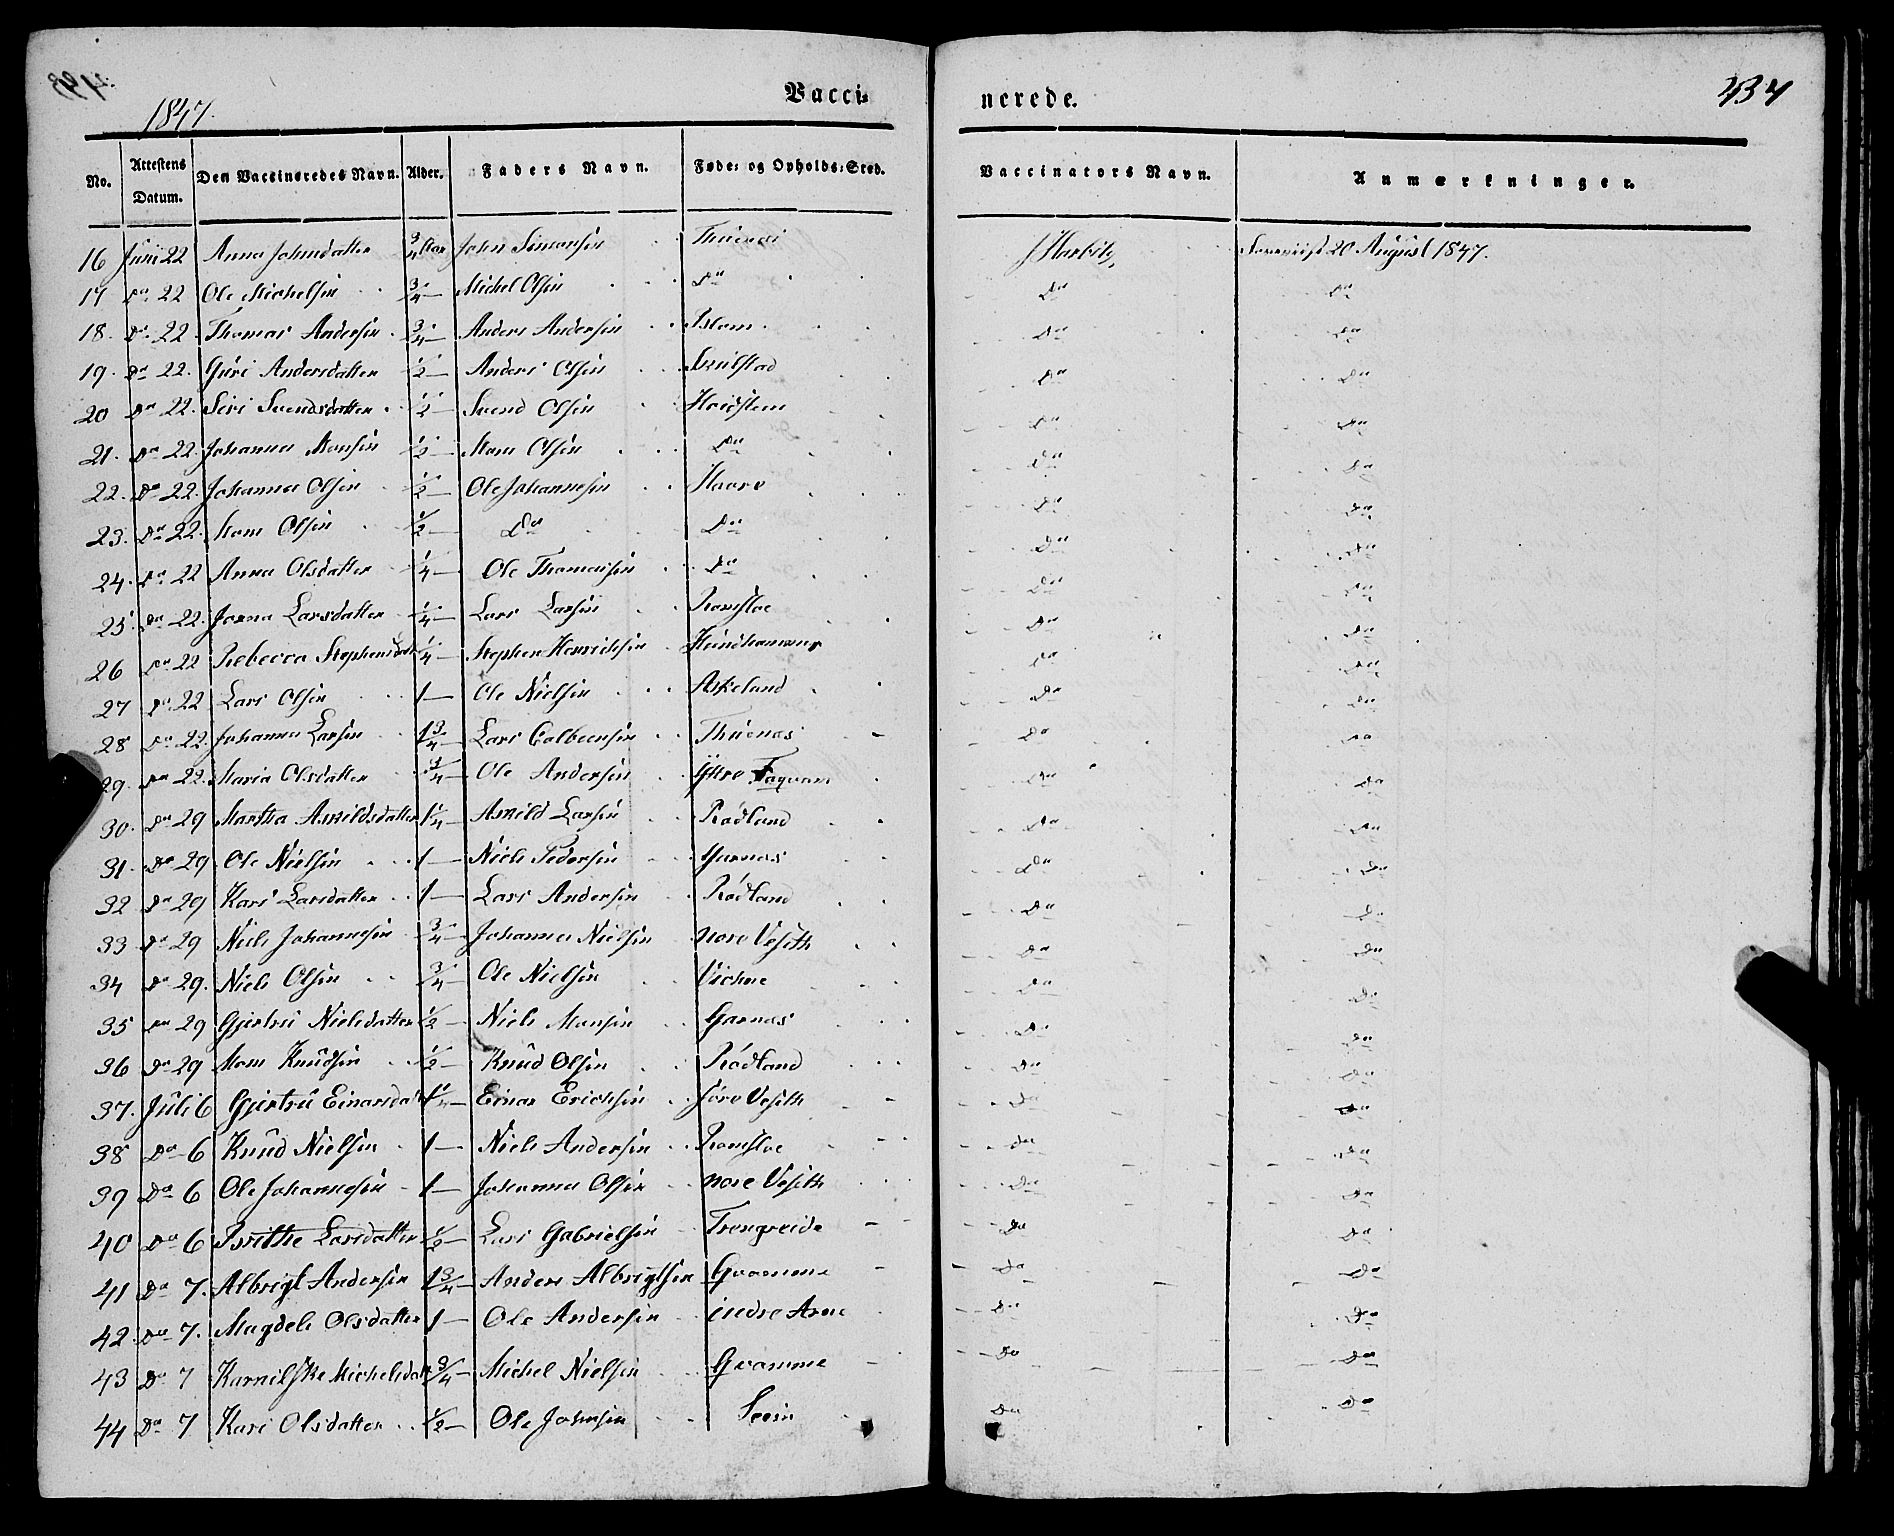 1847.
Vacci= nerede.
434
No. Attestens Datum. Den Vaccineredes Navn. Alder. Faders Navn. Føde= og Opholds=Sted. Vaccinators Navn. Anmærkninger.
16 Juni 22 Anna Johnsdatter 3/4 Aar John Simonsen J Harbitz 20 August 1847.
17 Do 22 Ole Michelsen 3/4 — Michel Olsen Do Do Do
18. Do 22. Thomas Andersen 3/4 — Anders Andersen Do Do
19. Do 22. Guri Andersdatter 1/2 — Anders Olsen Do Do
20 Do 22. Siri Svendsdatter 1/2 — Svend Olsen Do Do
21. Do 22. Johannes Monsen 1/2 — Mons Olsen Do Do Do
22. Do 22. Johannes Olsen 1/2 — Ole Johannesen Haave Do Do
23. Do 22. Mons Olsen 1/2 — Do Do Do Do
24. Do 22 Anna Olsdatter 1/4 — Ole Thomassen Do Do Do
25. Do 22. Larsdatter 1/4 — Lars Larsen Romsloe Do Do
26 Do 22 Rebecca Stephensdatr 1/4 — Stephen Henrichsen Hundhammer Do Do
27 Do 22 Lars Olsen 1 — Ole Nielsen Askeland Do Do
28 Do 22. Johannes Larsen 1 3/4 — Lars Thuenæs Do Do
29. Do 22. Maria Olsdatter 3/4 — Ole Andersen Yttre Do Do
30. Do 29 Martha Askildsdatter 1 1/4 — Askild Larsen Rödland Do Do
31. Do 29. Ole Nielsen 1 — Niels Pedersen Garnæs Do Do
32 Do 29 Kari Larsdatter 1 — Lars Andersen Rödland Do Do
33 Do 29 Niels Johannesen 3/4 — Johannes Nielsen nore Veseth Do Do
34 Do 29. Niels Olsen 3/4 — Ole Nielsen Do Do
35 Do 29 Gjertru Nielsdatter 1/2 — Niels Monsen Garnæs Do Do
36 Do 29 Mons Knudsen 1/2 — Knud Olsen Rödland Do Do
37. Juli 6 Gjertru Einarsdatr Einar Erichsen söre Veseth Do Do
38 Do 6 Knud Nielsen 1 — Niels Andersen Romsloe Do Do
39 Do 6 Ole Johannesen 1 — Johannes Olsen nore Veseth Do Do
40 Do 6 Brithe Larsdatter 1/2 — Lars Gabrielsen Trengreide Do Do
41 Do 7. Albrigt Andersen 1 3/4 — Anders Albrigtsen Gvamme Do Do
42. Do 7. Magdele Olsdatter 1 — Ole Andersen indre Arne Do Do
43 Do 7 Karnilske Michelsdatr 3/4 — Michel Nielsen Gvamme Do Do
44 Do 7 Kari Olsdatter 1/2 — Ole Johnsen Do Do